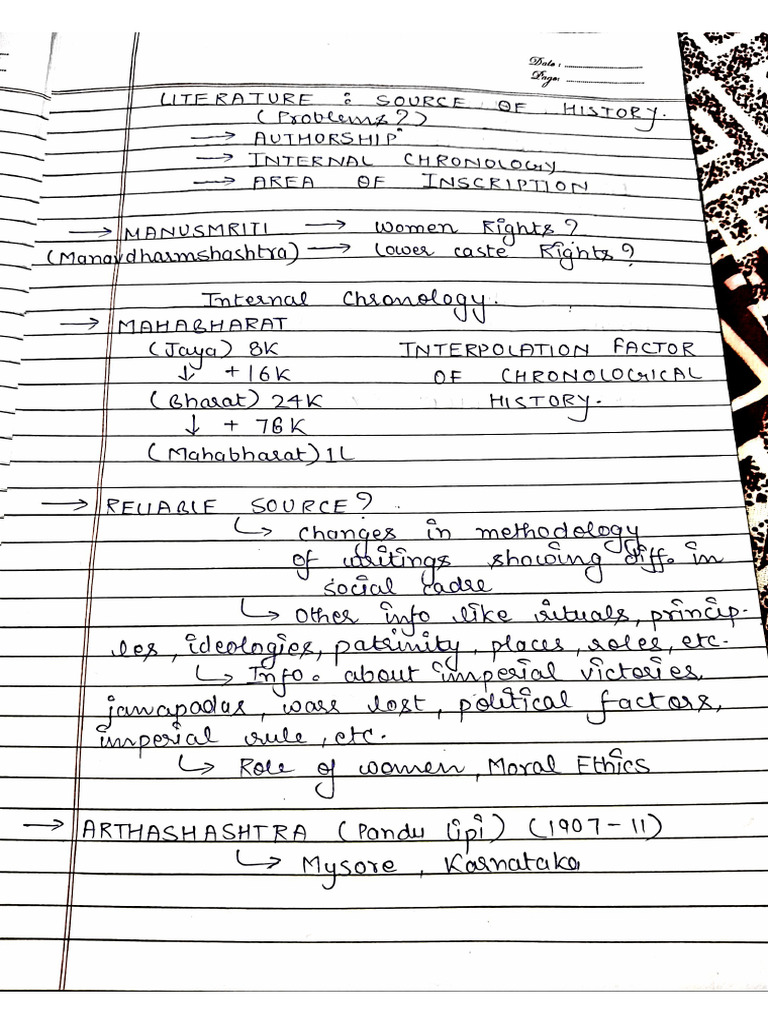 Date :
Page:
LITERATURE : SOURCE OF HISTORY.
(Problems?)
→ AUTHORSHIP
→ INTERNAL CHRONOLOGY
→ AREA OF INSCRIPTION
→ MANUSMRITI → Women Rights?
(Manavdharmshashtra) → lower caste Rights?
Internal Chronology.
→ MAHABHARAT
(Jaya) 8K INTERPOLATION FACTOR
↓ +16K OF CHRONOLOGICAL
(Bharat) 24K HISTORY.
↓ + 76K
(Mahabharat) 1L
→ RELIABLE SOURCE?
↳ changes in methodology
of writings showing diff. in
social cadre
↳ Other info like rituals, princip-
les, ideologies, patrinity, places, roles, etc.
↳ Info. about imperial victories,
janapadas, wars lost, political factors,
imperial rule, etc.
↳ Role of women, Moral Ethics
→ ARTHASHASHTRA (Pandu lipi) (1907-11)
↳ Mysore, Karnataka